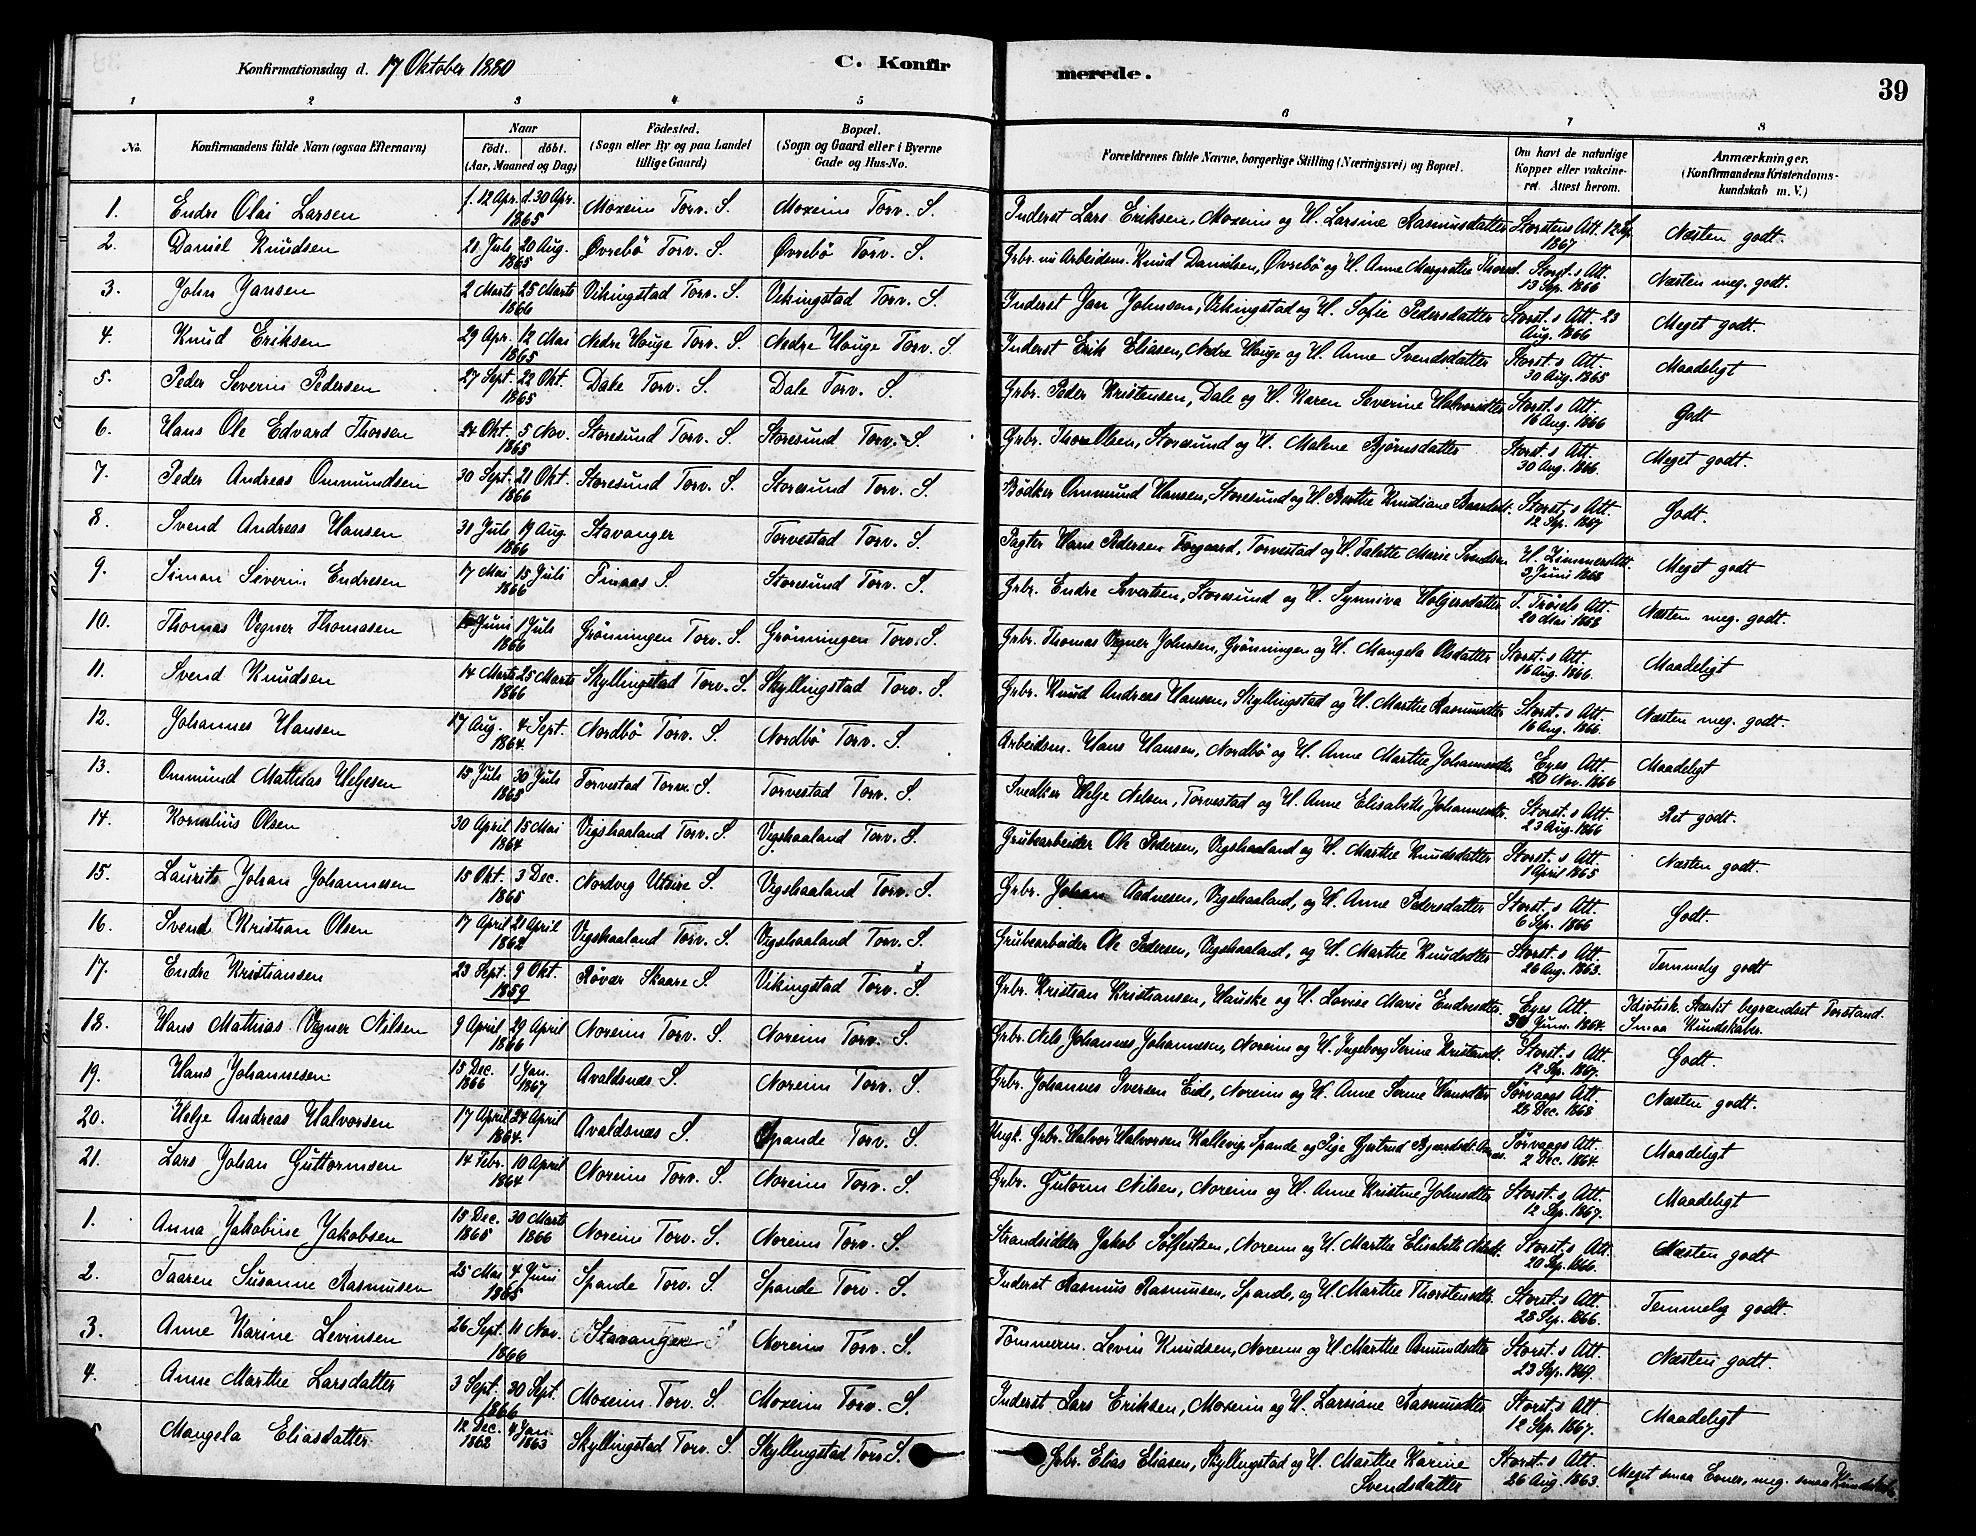 Konfirmationsdag d. 17 Oktober 1880
C. Konfirmerede.
39
1 2 3 4 5 6 7 8
No.
Konfirmandens fulde Navn (ogsaa Efternavn)
Naar
födt. döbt.
(Aar, Maaned og Dag)
Födested.
(Sogn eller By og paa Landet tillige Gaard)
Bopæl.
(Sogn og Gaard eller i Byerne Gade og Hus-No.
Forældrenes fulde Navne, borgerlige Stilling (Næringsvei) og Bopæl.
Om havt de naturlige Kopper eller vakcineret. Attest herom.
Anmærkninger.
(Konfirmandens Kristendomskundskab m. V.)
1. Endre Olai Larsen f. 12 Apr. d. 30 Apr. 1865 Moxeim Torv. S. Moxeim Torv. S. Inderst Lars Eriksen, Moxeim og H. Larsine Rasmusdatter Storstens Att. 12 Sp. 1867 Næsten godt.
2. Daniel Knudsen 21 Juli 20 Aug. 1865 Øvrebö Torv. S. Øvrebö Torv. S. Grbr. nu Arbeidsm. Knud Danielsen, Øvrebö og H. Anne Margrethe Thorsd. Storst. s Att. 13 Sep. 1866 Næsten meg. godt.
3. John Jansen 2 Marts 25 Marts 1866 Vikingstad Torv. S. Vikingstad Torv. S. Inderst Jan Johnsen, Vikingstad og H. Sofie Pedersdatter Storst. s Att. 23 Aug. 1866 Meget godt.
4. Knud Eriksen 29 Apr. 12 Mai 1865 Nedre Hauge Torv. S. Nedre Hauge Torv. S. Inderst Erik Eliasen, Nedre Hauge og H. Anne Svendsdatter Storst. s Att. 30 Aug. 1865 Maadeligt
5. Peder Severin Pedersen 27 Sept. 22 Okt. 1865 Dale Torv. S. Dale Torv. S. Grbr. Peder Kristensen, Dale og H. Karen Severine Halvorsdtr Storst. s Att. 16 Aug. 1866 Godt
6. Hans Ole Edvard Thorsen 24 Okt. 5 Nov. 1865 Storesund Torv. S. Storesund Torv. S. Grbr. Thore Olsen, Storesund og H. Malene Bjørnsdatter Storst. s Att. 30 Aug. 1866. Meget godt.
7. Peder Andreas Ommundsen 30 Sept. 21 Okt. 1866 Storesund Torv. S. Storesund Torv. S. Bödker Ommund Hansen, Storesund og H. Berthe Kristiane Baardsdt. Storst. s Att. 12 Sep. 1867 Godt.
8. Svend Andreas Hansen 31 Juli 19 Aug. 1866 Stavanger Torvestad Torv. S. Pagter Hans Pedersen Torgaard, Torvestad og H. Talette Marie Svendsen H. Zimmers Att. 2 Juni 1868 Meget godt
9. Simon Severin Endresen 17 Mai 15 Juli 1866 Finaas S. Storesund Torv. S. Grbr. Endre Sivertsen, Storesund og H. Synniva Holgersdatter T. Trøsels Att. 20 Mai 1868 Næsten meg. godt.
10. Thomas Vegner Thomasen Juni 1 Juli 1866 Grönningen Torv. S. Grönningen Torv. S. Grbr. Thomas Vegner Johnsen, Grönningen og H. Mangela Olsdatter Storst. s Att. 16 Aug. 1866. Maadeligt
11. Svend Knudsen 14 Marts 25 Marts 1866 Skyllingstad Torv. S. Skyllingstad Torv. S. Grbr. Knud Andreas Hansen, Skyllingstad og H. Marthe Rasmusdtr Storst. s Att. 16 Aug. 1866. Næsten meg. godt.
12. Johannes Hansen 17 Aug. 4 Sept. 1864. Nordbö Torv. S. Nordbö Torv. S. Arbeidsm. Hans Hansen, Nordbö og H. Anne Marthe Johannesdtr Eyes Att. 20 Nov. 1866 Maadeligt
13. Ommund Mathias Helgesen 15 Juli 30 Juli 1865 Torvestad Torv. S. Torvestad Torv. S. Snedker Helje Nelsen, Torvestad og H. Anne Elisabeth Johannesdtr. Storst. s Att. 23 Aug. 1866 Ret godt.
14. Kornelius Olsen 30 April 15 Mai 1864 Vegshaaland Torv. S. Vegshaaland Torv. S. Grubearbeider Ole Pedersen, Vegshaaland og H. Marthe Knudsdatter Storst. s Att. 1 April 1865 Næsten godt.
15. Laurits Johan Johannesen 15 Okt. 3 Dec. 1865 Nordvig Utsire S. Vegshaaland Torv. S. Grbr. Johan Aadnesen, Vegshaaland, og H. Anne Pedersdatter Storst. s Att. 6 Sep. 1866 Godt.
16. Svend Kristian Olsen 17 April 21 April 1862 Vegshaaland Torv. S. Vegshaaland Torv. S. Grubearbeider Ole Pedersen, Vegshaaland, og H. Marthe Knudsdatter Storst. s Att. 26 Aug. 1863. Temmelig godt
17. Endre Kristiansen 23 Sept. 9 Okt. 1859 Røvær Skaare S. Vikingstad Torv. S. Grbr. Kristian Kristiansen, Hauske og H. Lovise Marie Endresdtr. Eyes Att. 30 Juni. 1864. Idiotisk. Stærkt begrændset Forstand. Smaa Kundskaber.
18. Hans Mathias Vegner Nilsen 9 April 29 April 1866 Noreim Torv. S. Noreim Torv. S. Grbr. Nils Johannes Johannesen, Noreim og H. Ingeborg Serine Kristensdt. Storst. s Att. 12 Sep. 1867. Godt.
19. Hans Johannesen 15 Dec. 1866 1 Jan. 1867 Avaldsnæs S. Noreim Torv. S. Grbr. Johannes Iversen Eide, Noreim og H. Anne Serine Hansdtr Sørvaags Att. 23 Dec. 1868 Næsten godt.
20. Helje Andreas Halvorsen 17 April 24 April 1864. Avaldsnæs S. Spande Torv. S. Ungk. Grbr. Halvor Halvorsen Kallevig, Spande og Pige Gjertrud Sørvaags Att. 2 Dec. 1864. Maadeligt
21. Lars Johan Guttormsen 14 Febr. 10 April 1864 Noreim Torv. S. Noreim Torv. S. Grbr. Gutorm Nilsen, Noreim og H. Anne Kristine Johnsdtr Storst. s Att. 12 Sep. 1867. Maadeligt
1. Anna Jakobine Jakobsen 15 Dec. 1865 30 Marts 1866 Noreim Torv. S. Noreim Torv. S. Strandsidder Jakob Sølfestsen, Noreim og H. Marthe Elisabeth Nilsdt. Storst. s Att. 20 Sep. 1866. Næsten godt
2. Taaren Susanne Rasmusen 25 Mai 4 Juni 1865 Spande Torv. S. Spande Torv. S. Inderst Rasmus Rasmusen, Spande, og H. Marthe Thorstensdtr. Storst. s Att. 28 Sep. 1866. Temmelig godt.
3. Anne Karine Levinsen 26 Sept. 11 Nov. 1866 Stavanger Noreim Torv. S. Tömmerm. Levin Knudsen, Noreim og H. Marthe Osmundsdtr Storst. s Att. 23 Sep. 1869. Næsten godt.
4. Anne Marthe Larsdatter 3 Sept. 30 Sept. 1866 Moxeim Torv. S. Moxeim Torv. S. Inderst Lars Eriksen, Moxeim og H. Larsine Rasmusdtr Storst. s Att. 12 Sep. 1867. Maadeligt
Mangela Eliasdatter 12 Dec. 1862 4 Jan. 1863 Skyllingstad Torv. S. Skyllingstad Torv. S. Grbr. Elias Eliasen, Skyllingstad og H. Marthe Karine Svendsdatter Storst. s Att. 26 Aug. 1863. Meget smaa Evner, meg. smaa Kundskab.